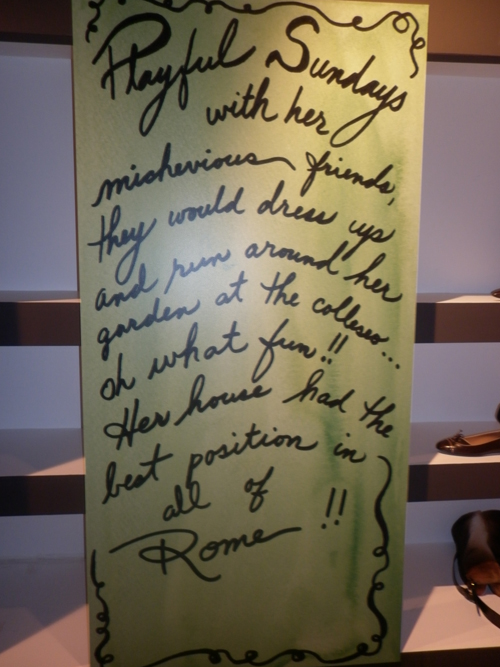 Playful Sundays
with her
mischevious friends,
they would dress up
and run around her
garden at the colleseo...
oh what fun!!
Her house had the
best position in
all of
Rome !!